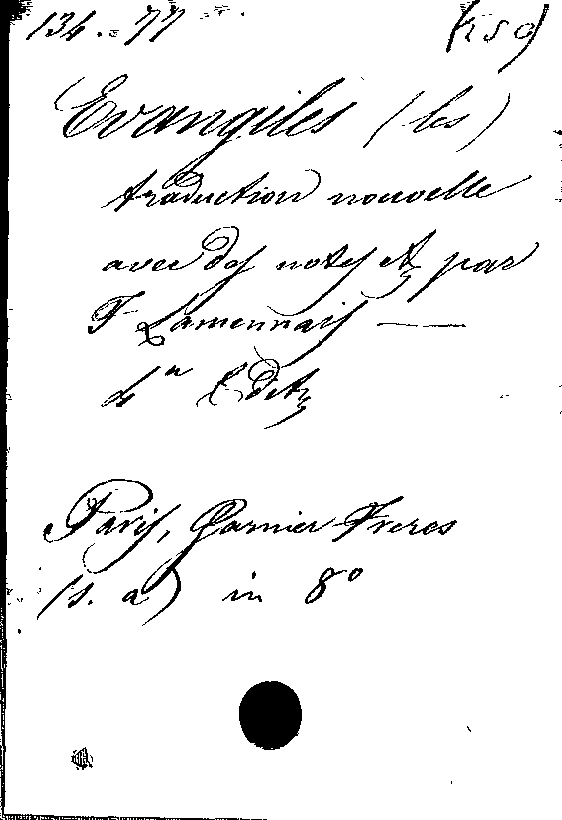 134.-77 (KSd)
Evangiles (les)
traduction nouvelle
avec des notes etc par
F Lamennais —
4" Edit
Paris, Garnier Freres
(s. a) in 8°